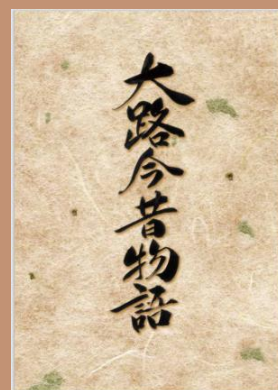 大路今昔物語